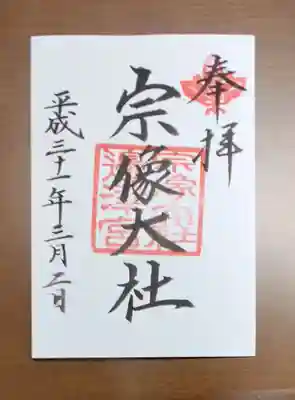 奉拝
宗像大社
平成三十一年三月二日